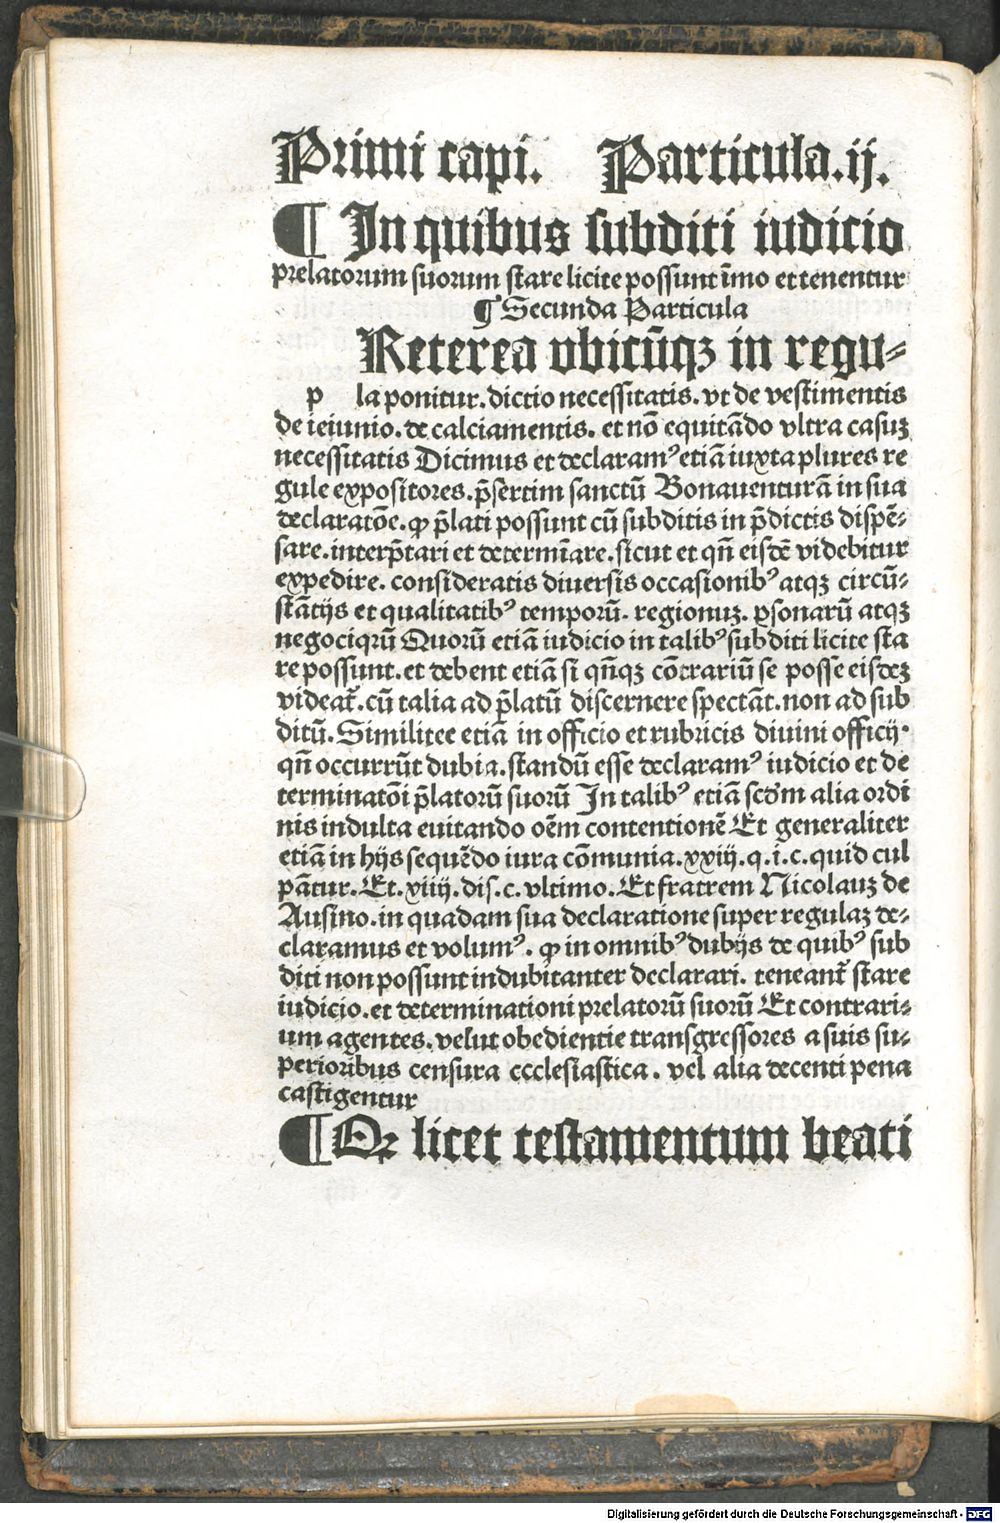 Primi capi. Particula.ij.
¶ In quibus subditi iudicio
prelatorum suorum stare licite possunt īmo et tenentur
¶ Secunda Particula
Reterea vbicūqꝫ in regu⸗
p la ponitur.dictio necessitatis.vt de vestimentis
de ieiunio.de calciamentis.et nō equitādo vltra casuꝫ
necessitatis Dicimus et declaramꝰ etiā iuxta plures re
gule expositores.p̄sertim sanctū Bonauenturā in sua
declaratōe.ꝙ p̄lati possunt cū subditis in p̄dictis dispē⸗
sare.interp̄tari et determīare.sicut et qn̄ eisdē videbitur
expedire. consideratis diuersis occasionibꝰ atqꝫ circū⸗
stātijs et qualitatibꝰ temporū. regionuꝫ. ꝑsonarū atqꝫ
negociorū Quorū etiā iudicio in talibꝰ subditi licite sta
re possunt.et debent etiā si qn̄qꝫ cōtrariū se posse eisdeꝫ
videat̄.cū talia ad p̄latū discernere spectāt.non ad sub
ditū.Similitee etiā in officio et rubricis diuini officij.
qn̄ occurrūt dubia.standū esse declaramꝰ iudicio et de
terminatōi p̄latorū suorū In talibꝰ etiā scd̄m alia ordi
nis indulta euitando oēm contentionē Et generaliter
etiā in hijs sequēdo iura cōmunia.xxiij.q.i.c.quid cul
pātur.Et.xiiij.dis.c.vltimo.Et fratrem Nicolauꝫ de
Ausino.in quadam sua declaratione super regulaꝫ de⸗
claramus et volumꝰ. ꝙ in omnibꝰ dubijs de quibꝰ sub
diti non possunt indubitanter declarari. teneant̄ stare
iudicio.et determinationi prelatorū suorū Et contrari⸗
um agentes.velut obedientie transgressores a suis su⸗
perioribus censura ecclesiastica. vel alia decenti pena
castigentur
¶ Qꝛ licet testamentum beati
Digitalisierung gefördert durch die Deutsche Forschungsgemeinschaft - DFG